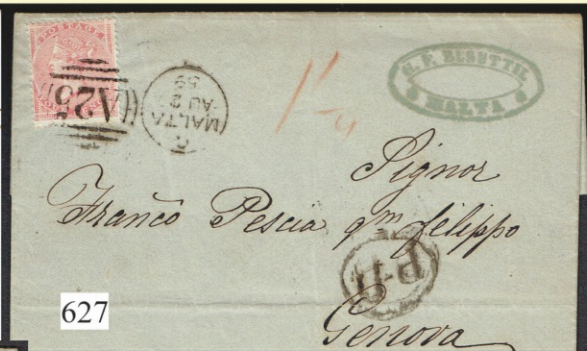 POSTAGE
A25
MALTA
AU 2
59
MALTA
Signor
Franco Pescia qm felippo
Genova
627